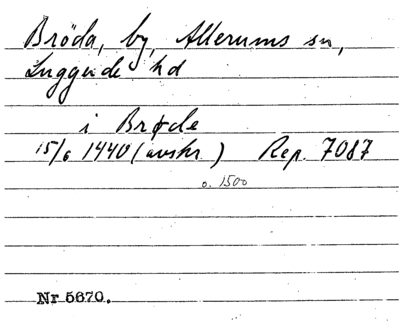 Bröda, by, Allerums sn,
Luggude hd
i Brøde
15/6 1440 (avskr.) Rep. 7087
o. 1500
Nr 5670.